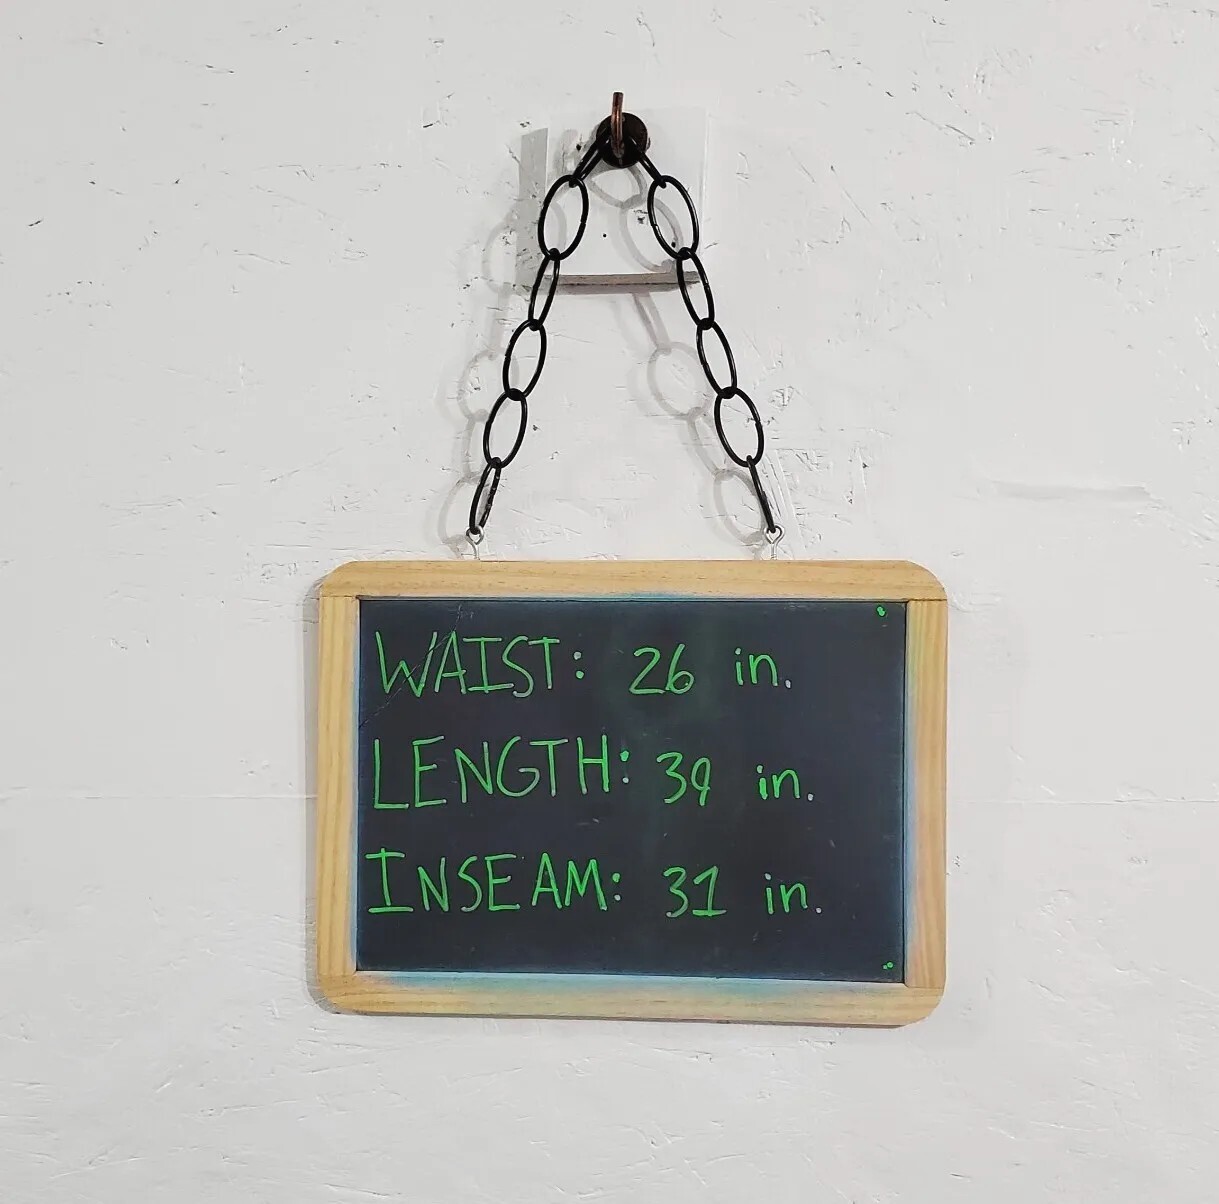 WAIST: 26 in.
LENGTH: 39 in.
INSEAM: 31 in.